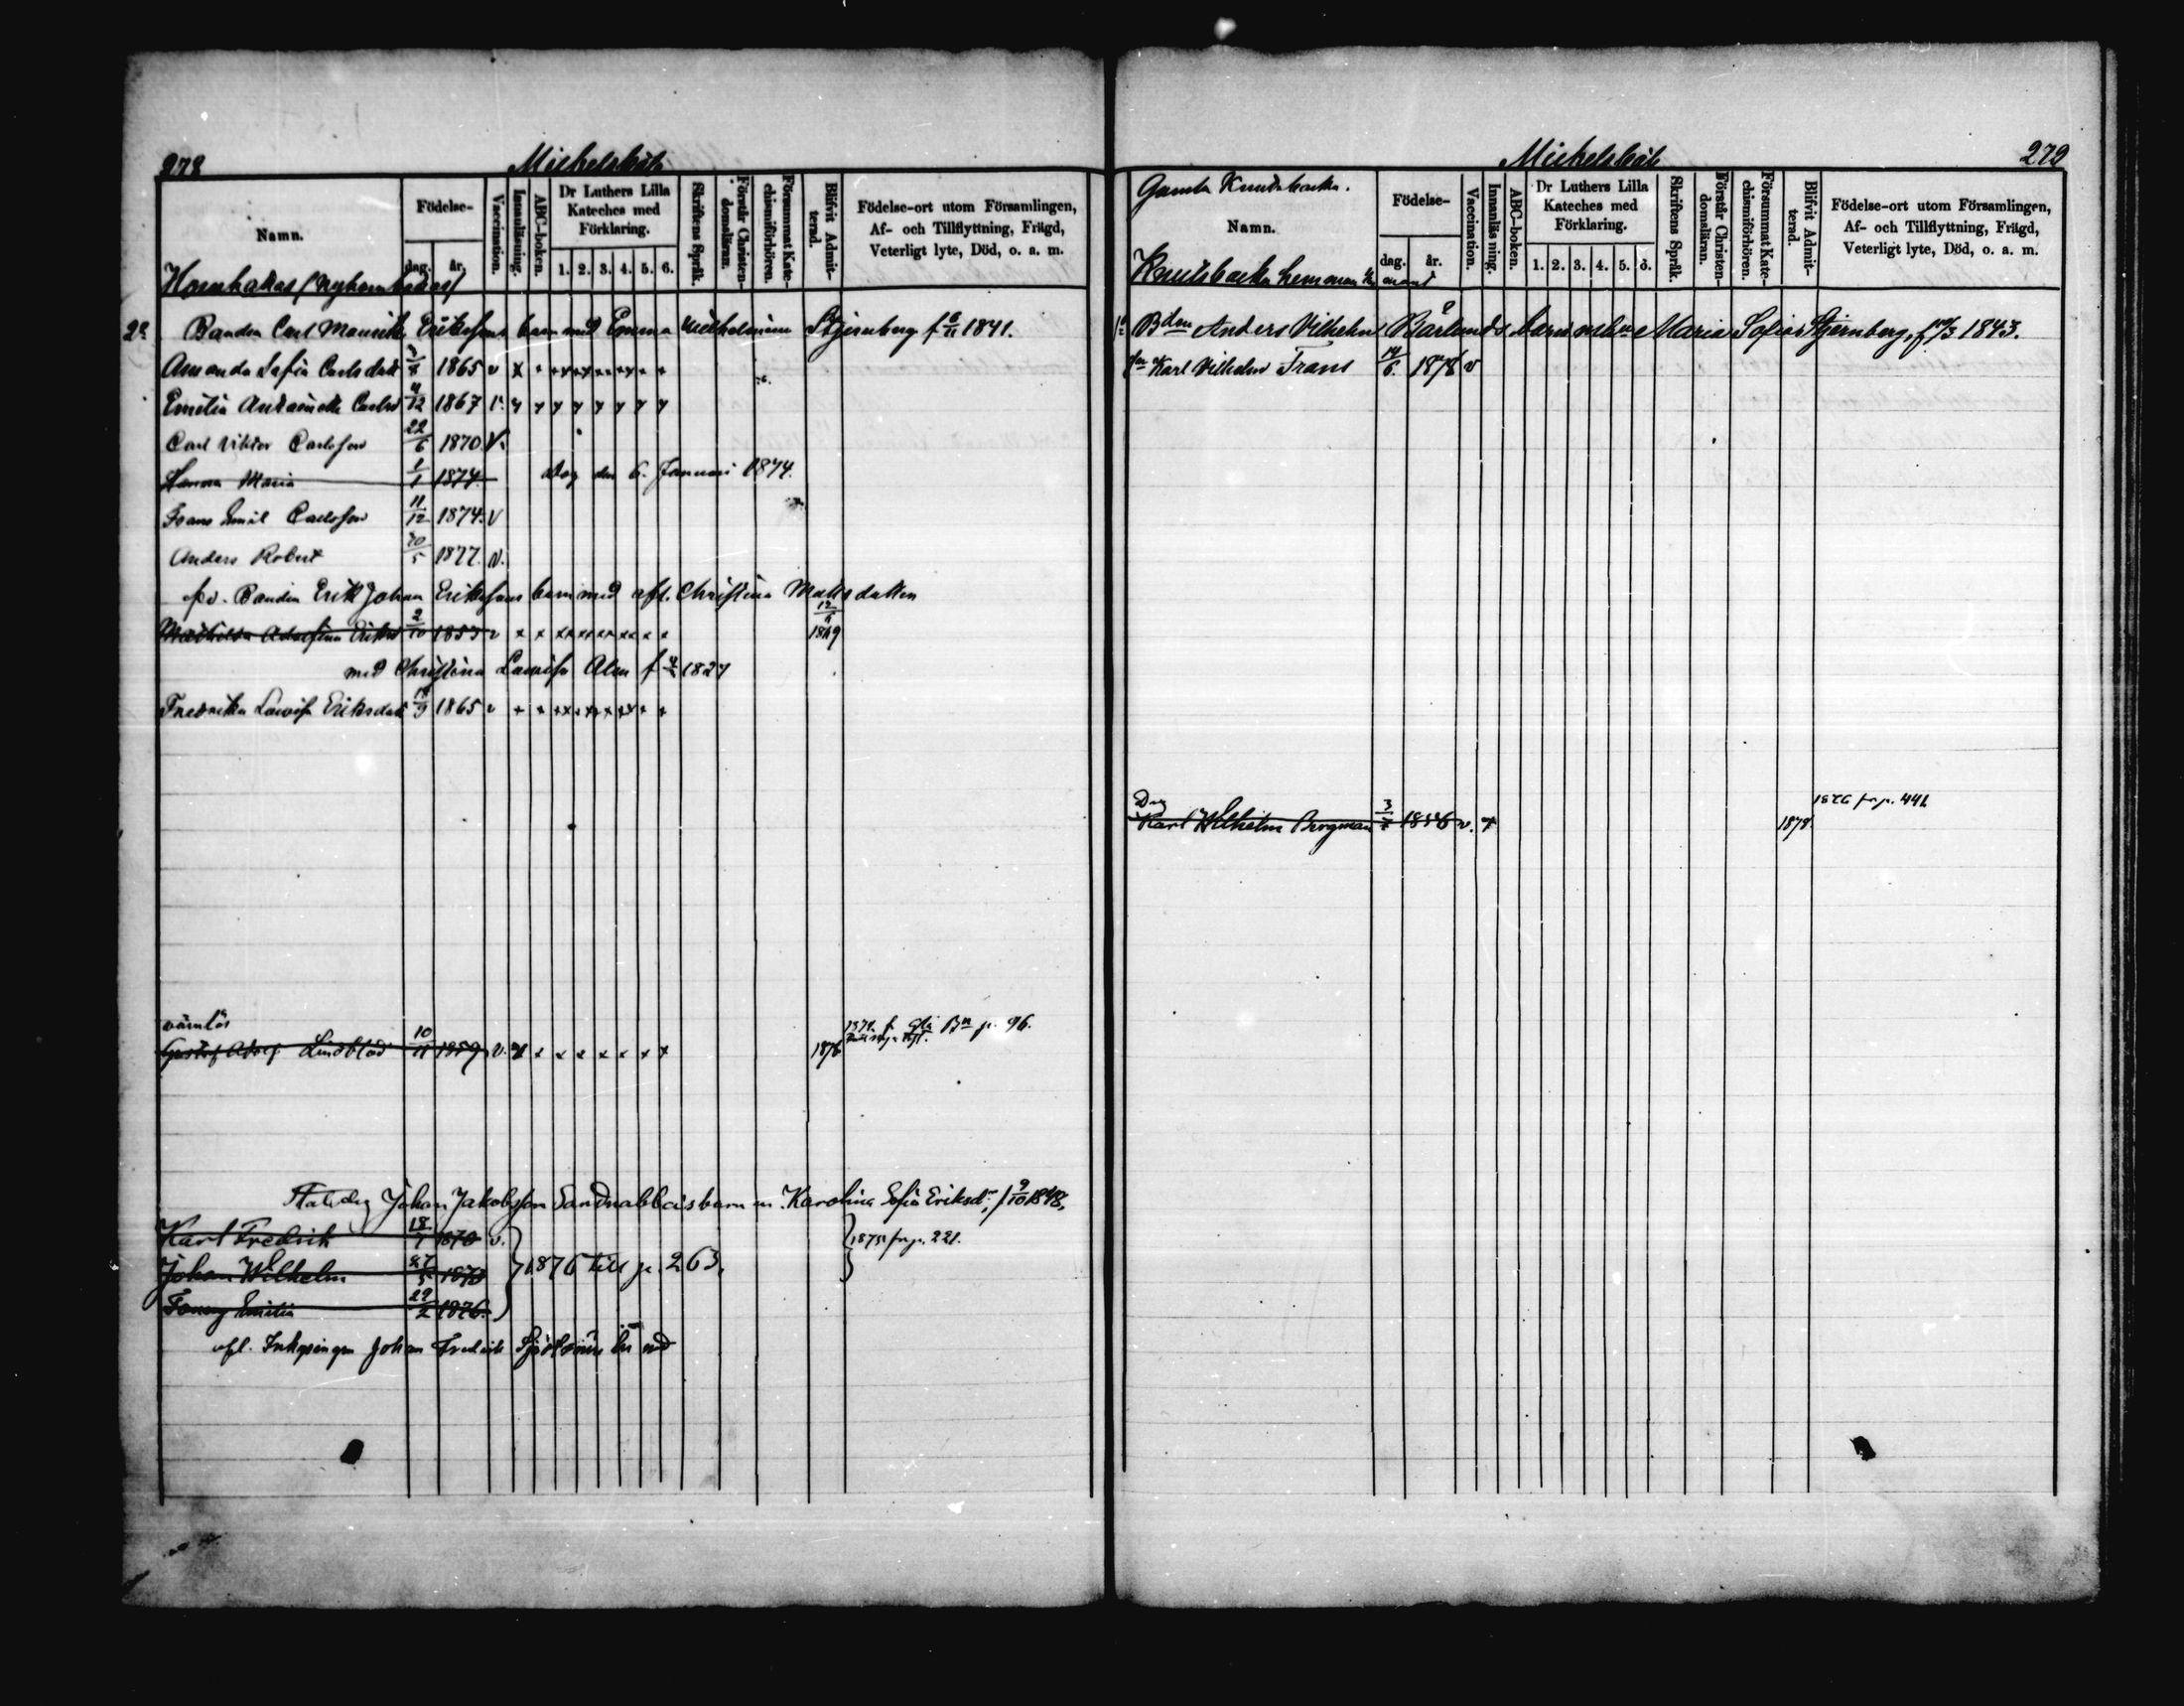 278 Mickelsböle
Namn. Födelse- dag. år. Vaccination. Innanläsning. ABC-boken. Dr Luthers Lilla Kateches med Förklaring. 1. 2. 3. 4. 5. 6. Skriftens Språk. Förstår Christendomsläran. Försummat Katechismiförhören. Blifvit Admitterad. Födelse-ort utom Församlingen, Af- och Tillflyttning, Frägd, Veterligt lyte, Död, o. a. m.
Bonden Carl Maurits Erikssons barn med Emma Wilhelmina Stjernberg f 6/11 1841.
Amanda Sofia Carlsdott 1865 v x x
Emilia Carlsd 4/12 1867 v.
Carl Viktor Carlsson 22/6 1870 V.
Hanna Maria 1/1 1874. dog den 6. Januari 1874.
Frans Emil Carlsson 11/12 1874. V
Anders Robert 30/5 1877. V.
f.d. Bonden Erik Johan Erikssons barn med afl. Christina Matts dotter
Mathilda Adolfina Eriksd 2/10 1853 v x x 1869
med Christina Lovisa Alm f 1827
Fredrika Lovisa Eriksdott 19/9 1865 v x x
värnlös
Gustaf Adolf Lindblad 10/11 1859 v. x x x x x x x x 1876 Bn p. 96.
Johan Jakobsson Sandnabbas barn m. Karolina Sofia Eriksdr, f 9/10 1848,
Karl Fredrik 18/7 1870 v. 1875 fr p. 221.
Johan Wilhelm 27/5 1873 1876 till p. 263.
Fanny Emilia 29/2 1876.
afl. Inhysingen Johan Fredrik
Mickelsböle 279
Gamla Knudsbacka.
Namn. Födelse- dag. år. Vaccination. Innanläsning. ABC-boken. Dr Luthers Lilla Kateches med Förklaring. 1. 2. 3. 4. 5. 6. Skriftens Språk. Förstår Christendomsläran. Försummat Katechismiförhören. Blifvit Admitterad. Födelse-ort utom Församlingen, Af- och Tillflyttning, Frägd, Veterligt lyte, Död, o. a. m.
Knutsbacka hemman
Bden Anders Vilhelm Bärlunds barn m Maria Sofia Stjernberg, f 1843.
Karl Vilhelm Frans 14/6. 1878 v
Drg 1876 fr p. 441
Karl Wilhelm Bergman 1856 v. x 1878.